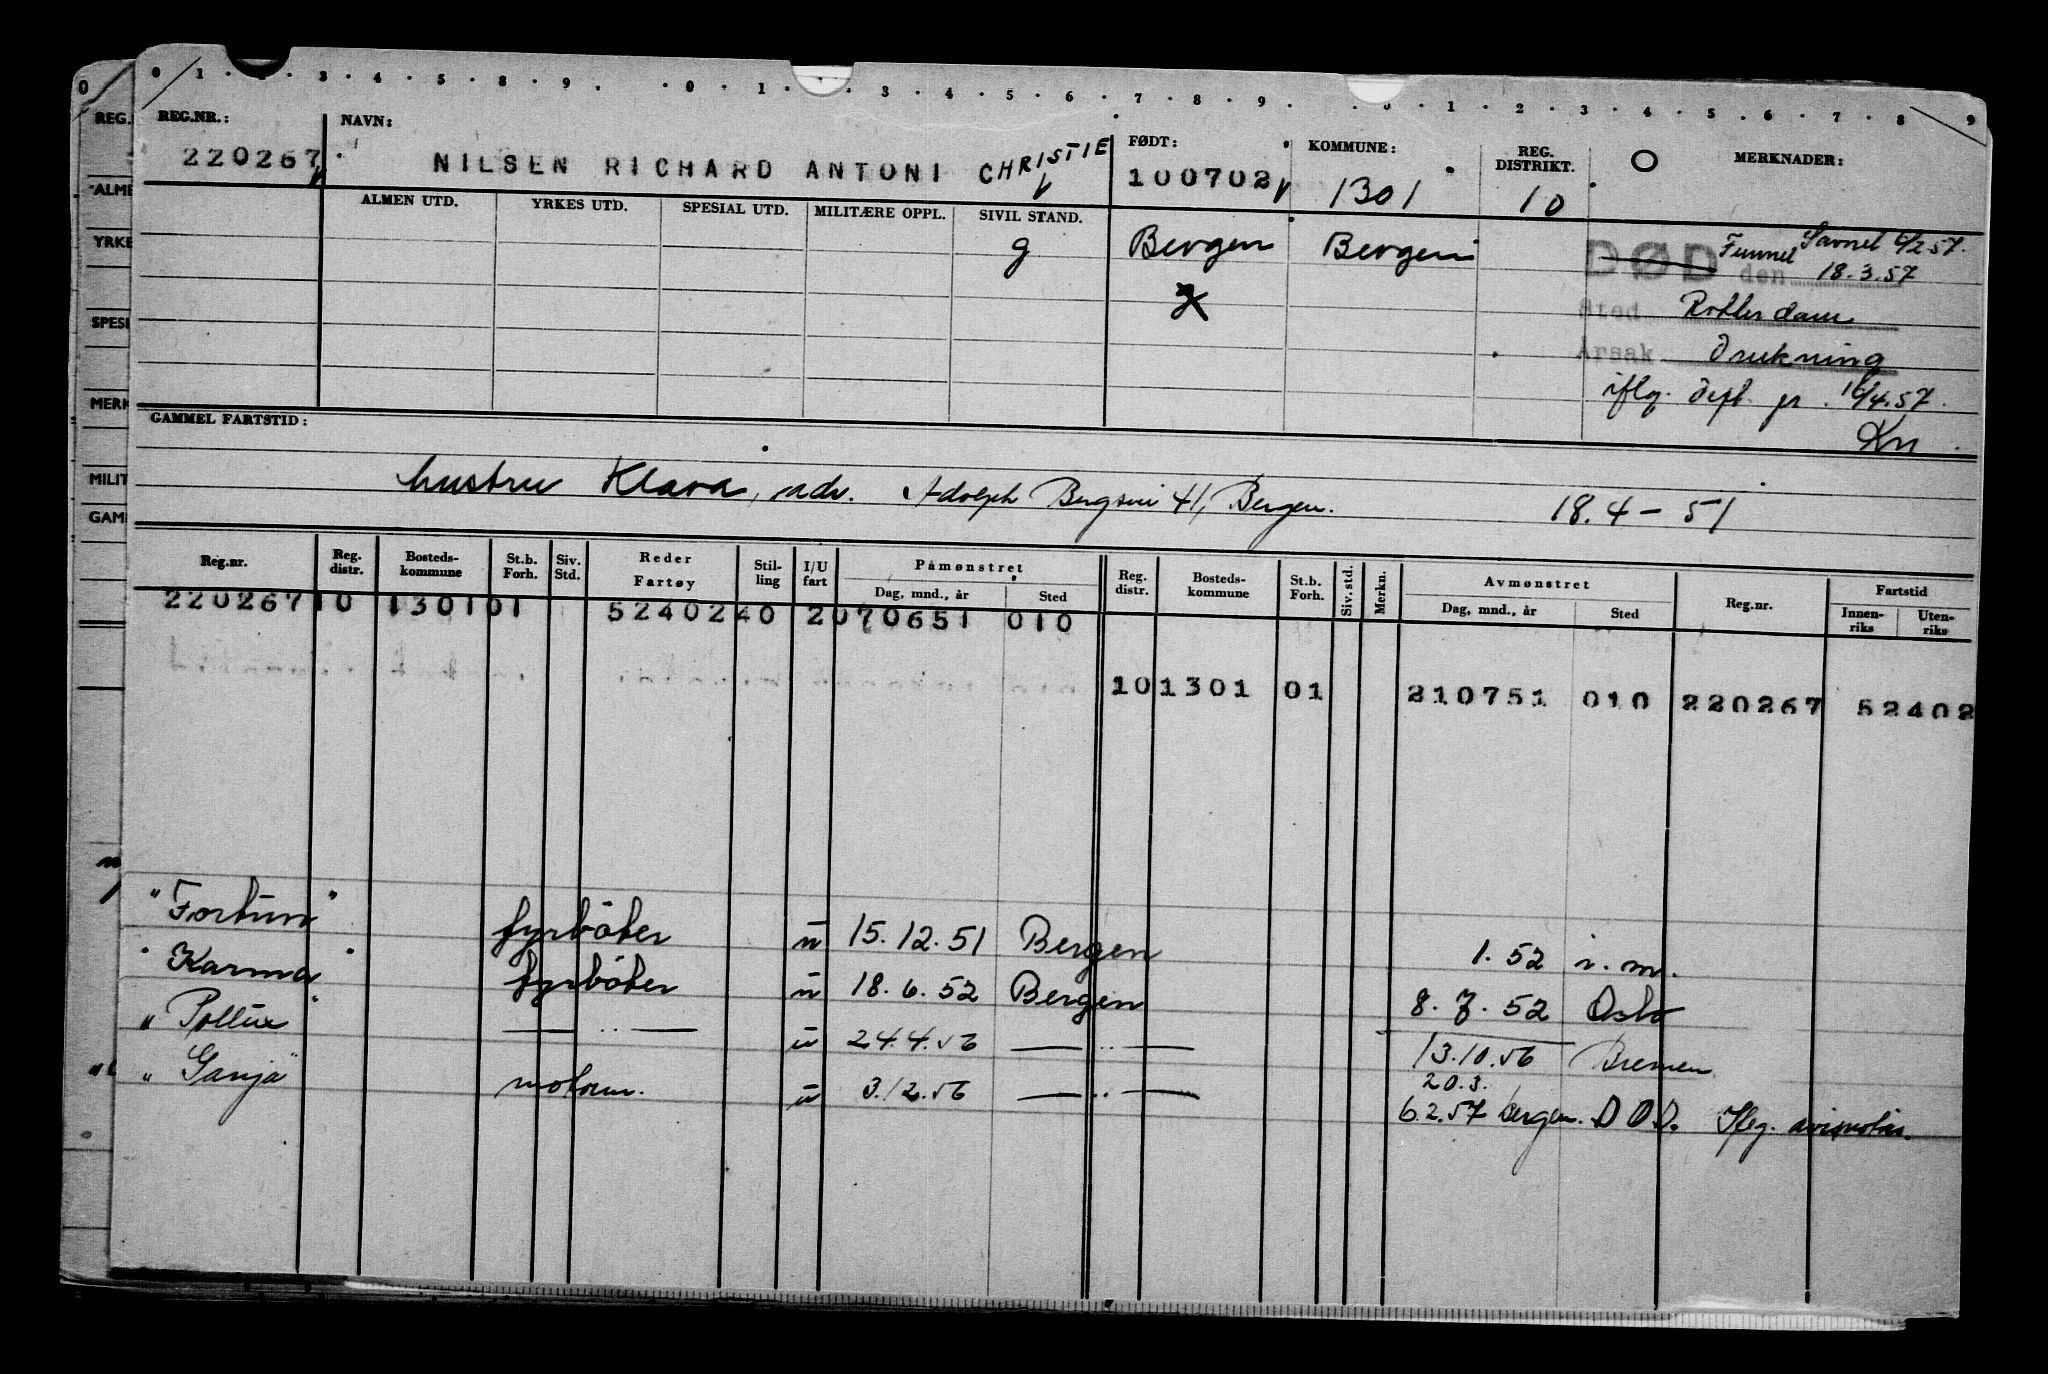 0 1 2 3 4 5 8 9 0 1 3 4 5 6 7 8 9 0 1 2 3 4 5 6 7 8 9
REG.NR.: NAVN: FØDT: KOMMUNE: REG. DISTRIKT. O MERKNADER:
220267 NILSEN RICHARD ANTONI CHRISTIE 100702 1301 10
ALMEN UTD. YRKES UTD. SPESIAL UTD. MILITÆRE OPPL. SIVIL STAND.
g Bergen Bergen
DØD den Funnet Savnet 6/2 57.
18.3.57
Sted Rotterdam
Årsak Drukning
iflg. dept. 16/4.57.
Kn
GAMMEL FARTSTID:
hustru Klara, adr. Adolph Bergsvei 41, Bergen. 18.4-51
Reg.nr. Reg. distr. Bosteds-kommune St.b. Forh. Siv. Std. Reder Fartøy Stil-ling I/U fart Påmønstret Dag, mnd., år Sted Reg. distr. Bosteds-kommune St.b. Forh. Siv. std. Merkn. Avmønstret Dag, mnd., år Sted Reg.nr. Fartstid Innen-riks Uten-riks
220267 10 1301 01 5240240 2 070651 010
10 1301 01 210751 010 220267 52402
"Fortun" fyrbøter u 15.12.51 Bergen 1.52 i.m.
"Karma" fyrbøter u 18.6.52 Bergen 8.7.52 Oslo
"Pollux" — " — u 24.4.56 — " — 13.10.56 Bremen
"Ganja" motorm. u 3.12.56 — " — 20.3.
6.2.57 bergen. DØD. Iflg. avisnotis.
REG.
ALME
YRKE
SPESI
MERK
MILIT
GAM